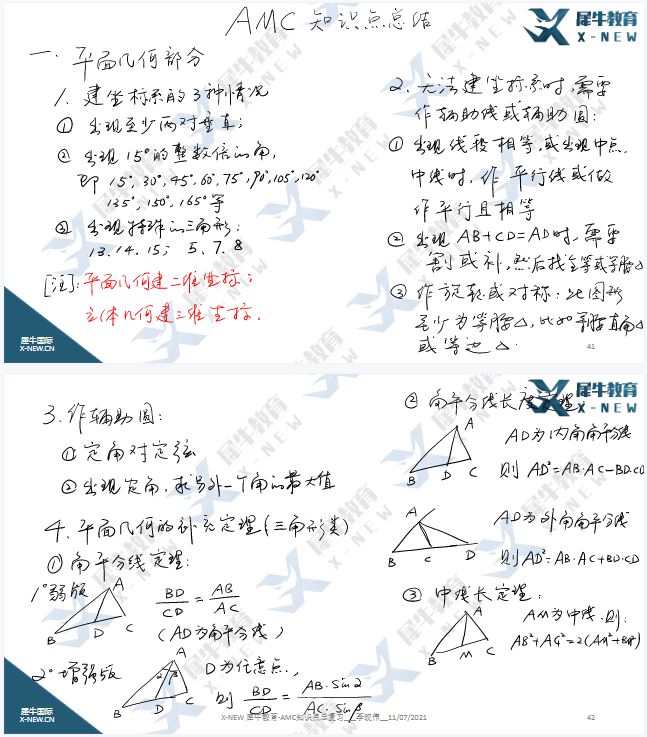 AMC 知识点总结
犀牛教育
X-NEW
一. 平面几何部分
1. 建坐标系的3种情况
① 出现至少两对垂直;
② 出现15°的整数倍的角,
即 15°, 30°, 45°, 60°, 75°, 90°, 105°, 120°
135°, 150°, 165° 等
③ 出现特殊的三角形:
13. 14. 15; 5. 7. 8
[注]: 平面几何建二维坐标;
立体几何建三维坐标.
2. 无法建坐标系时, 需要
作辅助线或辅助圆:
① 出现线段相等, 或出现中点.
中线时, 作平行线或做
作平行且相等
② 出现 AB+CD=AD时, 需要
割或补, 然后找全等或等腰△
③ 作旋转或对称: 此图形
至少为等腰△, 比如等腰直角△
或等边△.
犀牛国际
X-NEW.CN
41
3. 作辅助圆:
① 定角对定弦
② 出现定角, 求另外一个角的最大值
4. 平面几何的补充定理(三角形类)
① 角平分线定理:
1° 弱版
A
B D C
BD/CD = AB/AC
(AD为角平分线)
2° 增强版
A
α β
B D C
D为任意点,
则 BD/CD = AB·Sinα/AC·Sinβ
犀牛教育
X-NEW
② 角平分线长度定理:
A
B D C
AD为内角角平分线
则 AD²=AB·AC-BD·CD
A
B C D
AD为外角角平分线
则AD²=AB·AC+BD·CD
③ 中线长定理:
A
B M C
AM为中线. 则:
AB²+AC²=2(AM²+BM²)
犀牛国际
X-NEW.CN
X-NEW 犀牛教育-AMC知识点总复习__李现伟__11/07/2021
42